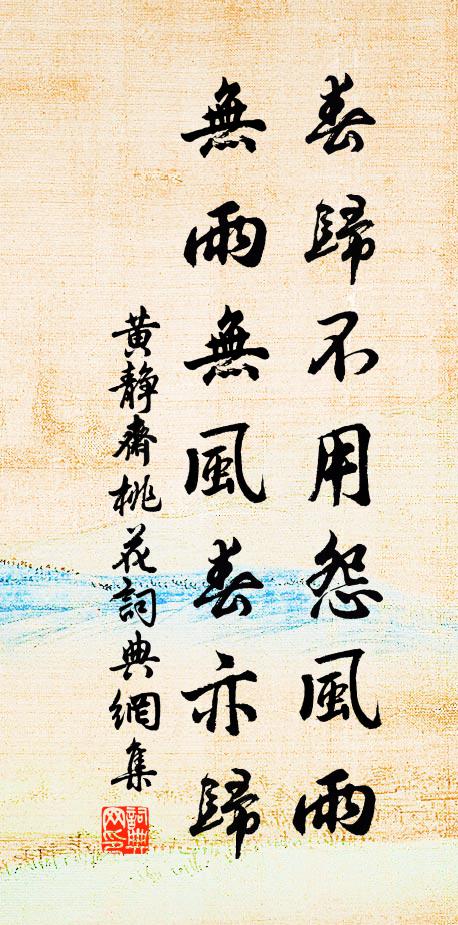 春歸不用怨風雨
無雨無風春亦歸
黃靜齋桃花詞典網集
詞典網印